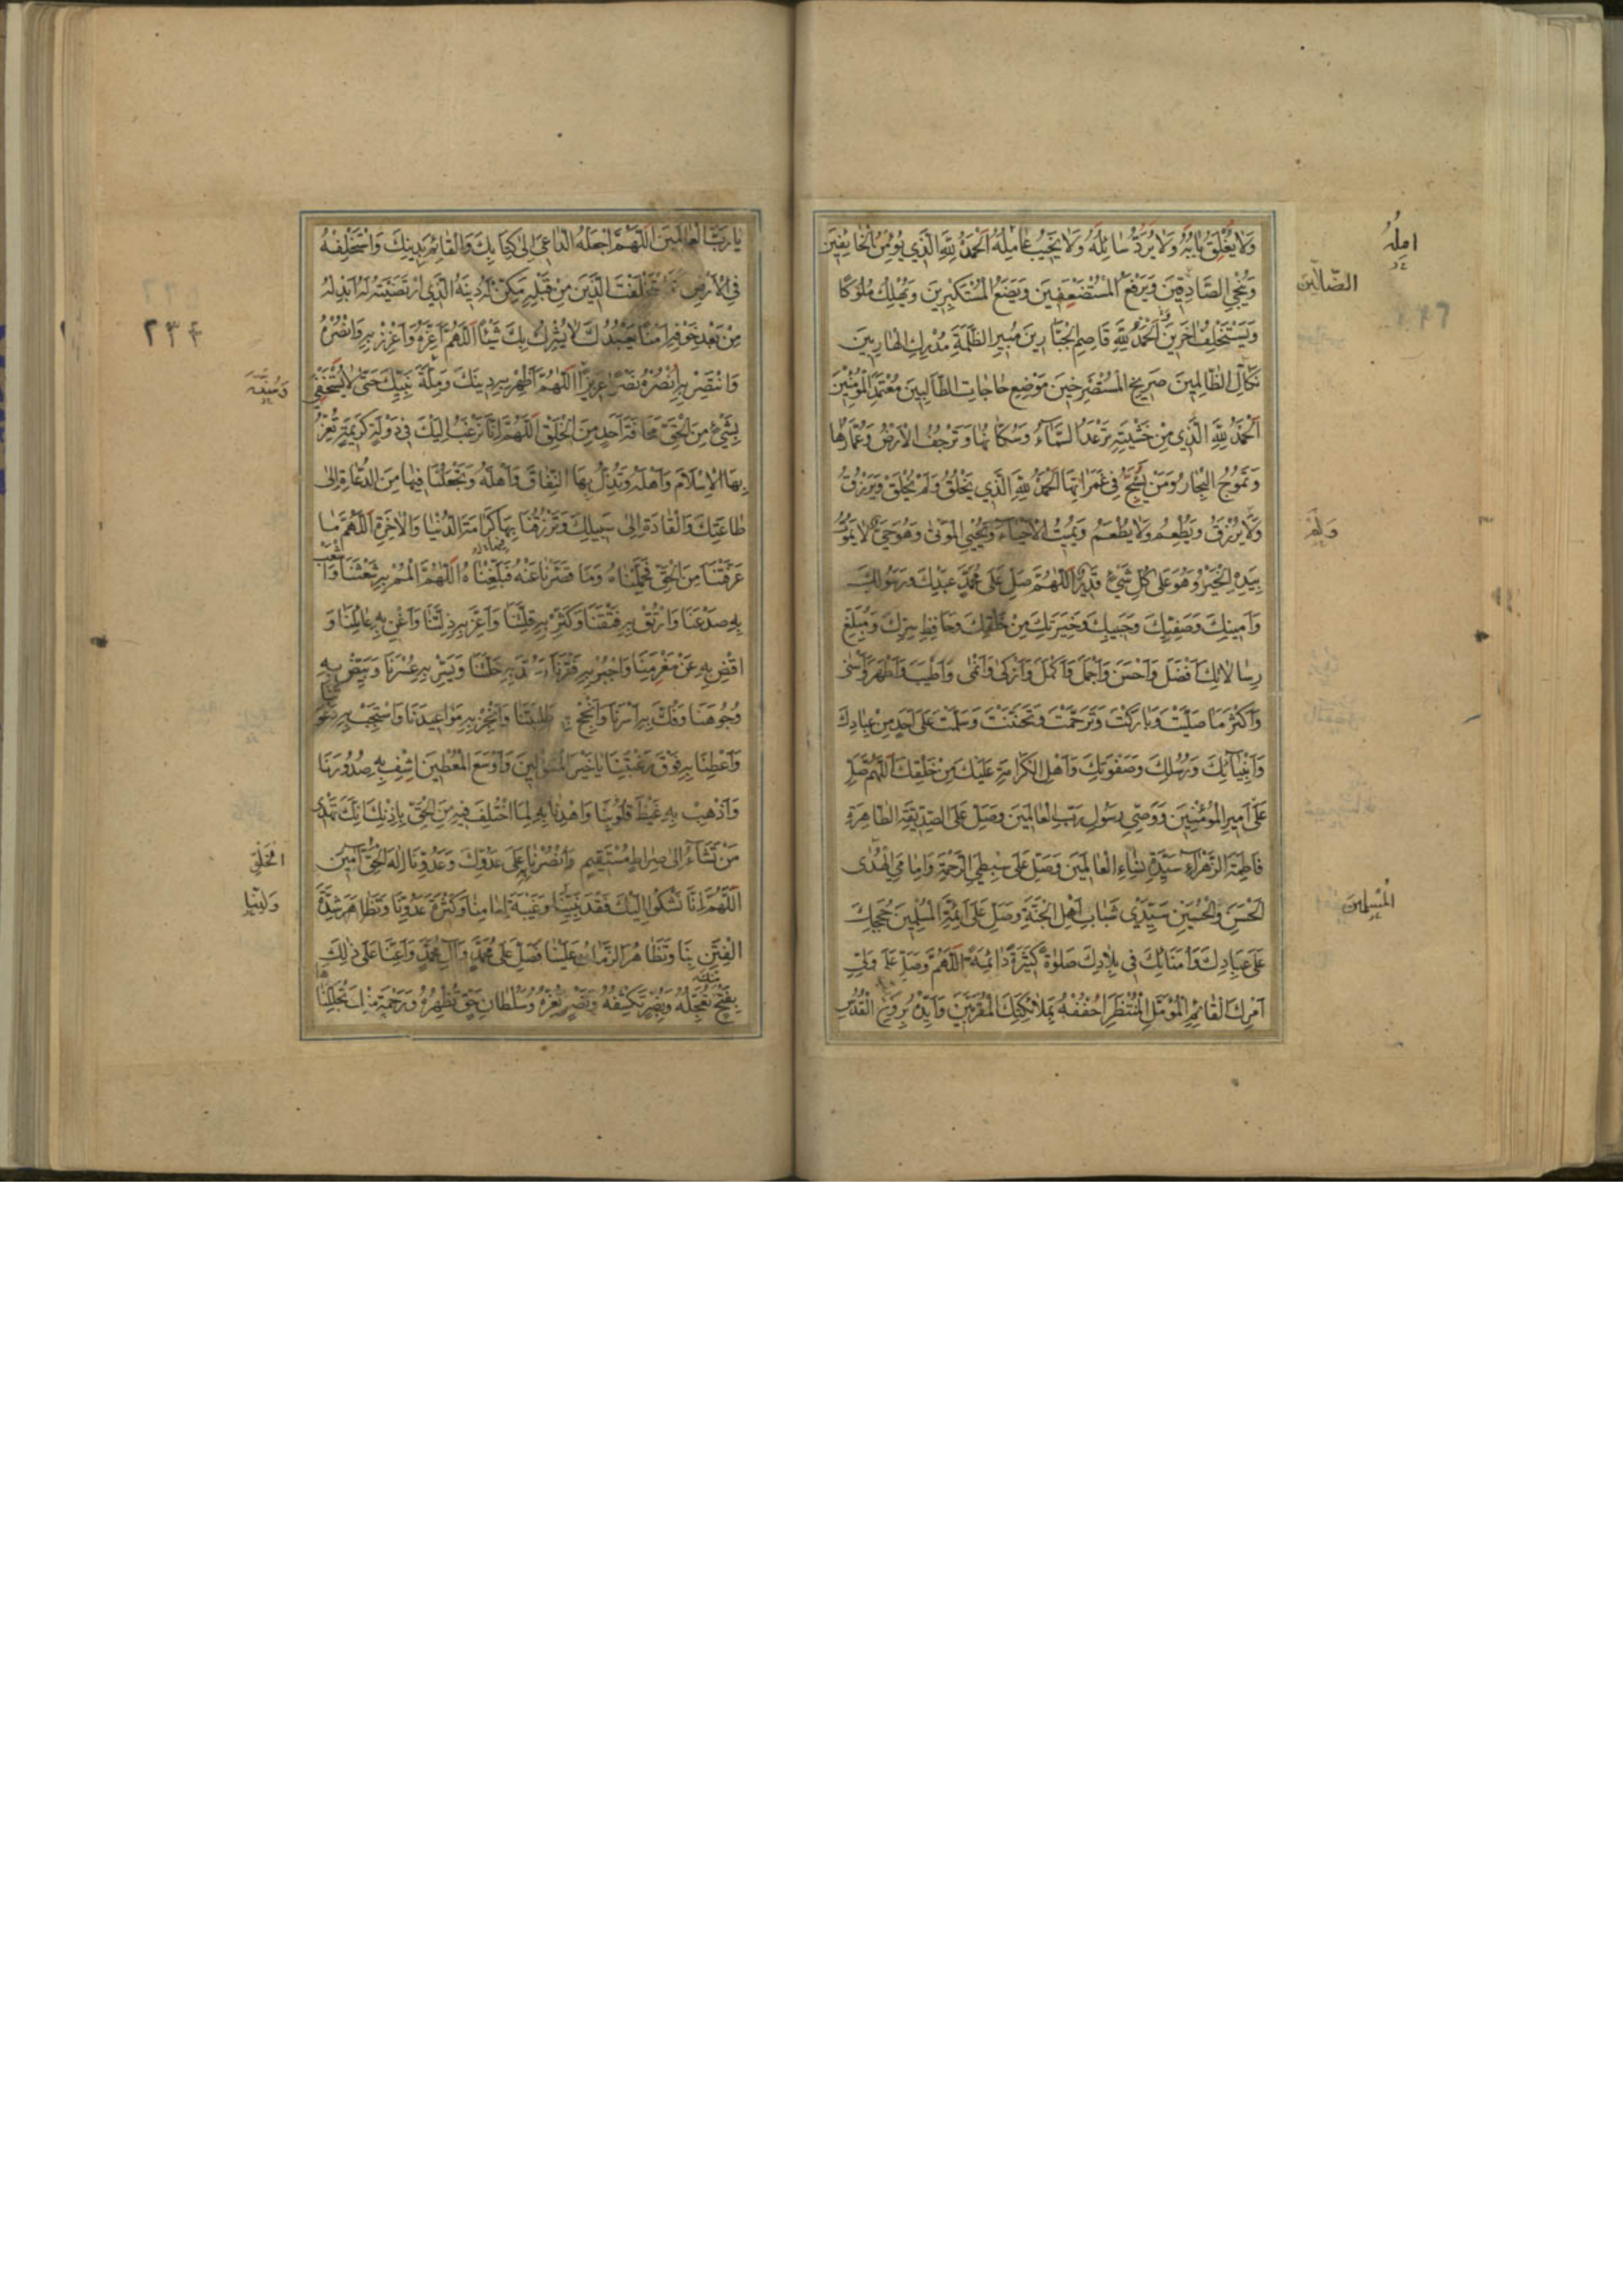 وَلَا يُغْلَقُ بَابُهُ وَلَا يُرَدُّ سَائِلُهُ وَلَا يَخِيبُ عَامِلُهُ اَلْحَمْدُ لِلّٰهِ الَّذِي يُؤْمِنُ الْخَائِفِينَ
امِلُهُ
وَيُنَجِّي الصَّادِقِينَ وَيَرْفَعُ الْمُسْتَضْعَفِينَ وَيَضَعُ الْمُسْتَكْبِرِينَ وَيُهْلِكُ مُلُوكًا
الصَّالِحِينَ
وَيَسْتَخْلِفُ اٰخَرِينَ وَالْحَمْدُ لِلّٰهِ قَاصِمِ الْجَبَّارِينَ مُبِيرِ الظَّلَمَةِ مُدْرِكِ الْهَارِبِينَ
نَكَالِ الظَّالِمِينَ صَرِيخِ الْمُسْتَصْرِخِينَ مَوْضِعِ حَاجَاتِ الطَّالِبِينَ مُعْتَمَدِ الْمُؤْمِنِينَ
اَلْحَمْدُ لِلّٰهِ الَّذِي مِنْ خَشْيَتِهِ تَرْعَدُ السَّمَاءُ وَسُكَّانُهَا وَتَرْجُفُ الْاَرْضُ وَعُمَّارُهَا
وَتَمُوجُ الْبِحَارُ وَمَنْ يَسْبَحُ فِي غَمَرَاتِهَا اَلْحَمْدُ لِلّٰهِ الَّذِي يَخْلُقُ وَلَمْ يُخْلَقْ وَيَرْزُقُ
وَلَا يُرْزَقُ وَيُطْعِمُ وَلَا يُطْعَمُ وَيُمِيتُ الْاَحْيَاءَ وَيُحْيِي الْمَوْتٰى وَهُوَ حَيٌّ لَا يَمُوتُ
وَلَمْ
بِيَدِهِ الْخَيْرُ وَهُوَ عَلٰى كُلِّ شَيْءٍ قَدِيرٌ اَللّٰهُمَّ صَلِّ عَلٰى مُحَمَّدٍ عَبْدِكَ وَرَسُولِكَ
وَاَمِينِكَ وَصَفِيِّكَ وَحَبِيبِكَ وَخِيَرَتِكَ مِنْ خَلْقِكَ وَحَافِظِ سِرِّكَ وَمُبَلِّغِ
رِسَالَاتِكَ اَفْضَلَ وَاَحْسَنَ وَاَجْمَلَ وَاَكْمَلَ وَاَزْكٰى وَاَنْمٰى وَاَطْيَبَ وَاَطْهَرَ وَاَسْنٰى
وَاَكْثَرَ مَا صَلَّيْتَ وَبَارَكْتَ وَتَرَحَّمْتَ وَتَحَنَّنْتَ وَسَلَّمْتَ عَلٰى اَحَدٍ مِنْ عِبَادِكَ
وَاَنْبِيَائِكَ وَرُسُلِكَ وَصَفْوَتِكَ وَاَهْلِ الْكَرَامَةِ عَلَيْكَ مِنْ خَلْقِكَ اَللّٰهُمَّ صَلِّ
عَلٰى اَمِيرِ الْمُؤْمِنِينَ وَوَصِيِّ رَسُولِ رَبِّ الْعَالَمِينَ وَصَلِّ عَلَى الصِّدِّيقَةِ الطَّاهِرَةِ
فَاطِمَةَ الزَّهْرَاءِ سَيِّدَةِ نِسَاءِ الْعَالَمِينَ وَصَلِّ عَلٰى سِبْطَيِ الرَّحْمَةِ وَاِمَامَيِ الْهُدٰى
الْحَسَنِ وَالْحُسَيْنِ سَيِّدَيْ شَبَابِ اَهْلِ الْجَنَّةِ وَصَلِّ عَلٰى اَئِمَّةِ الْمُسْلِمِينَ حُجَجِكَ
الْمُسْلِمِينَ
عَلٰى عِبَادِكَ وَاُمَنَائِكَ فِي بِلَادِكَ صَلٰوةً كَثِيرَةً دَائِمَةً اَللّٰهُمَّ وَصَلِّ عَلٰى وَلِيِّ
اَمْرِكَ الْقَائِمِ الْمُؤَمَّلِ الْمُنْتَظَرِ احْفُفْهُ بِمَلَائِكَتِكَ الْمُقَرَّبِينَ وَاَيِّدْهُ بِرُوحِ الْقُدُسِ
يَا رَبَّ الْعَالَمِينَ اَللّٰهُمَّ اجْعَلْهُ الدَّاعِيَ اِلٰى كِتَابِكَ وَالْقَائِمَ بِدِينِكَ وَاسْتَخْلِفْهُ
فِي الْاَرْضِ كَمَا اسْتَخْلَفْتَ الَّذِينَ مِنْ قَبْلِهِ مَكِّنْ لَهُ دِينَهُ الَّذِي ارْتَضَيْتَهُ لَهُ اَبْدِلْهُ
۲۳۴
مِنْ بَعْدِ خَوْفِهِ اَمْنًا يَعْبُدُكَ لَا يُشْرِكُ بِكَ شَيْئًا اَللّٰهُمَّ اَعِزَّهُ وَاَعْزِزْ بِهِ وَانْصُرْهُ
وَانْتَصِرْ بِهِ انْصُرْهُ نَصْرًا عَزِيزًا اَللّٰهُمَّ اَظْهِرْ بِهِ دِينَكَ وَمِلَّةَ نَبِيِّكَ حَتّٰى لَا يَسْتَخْفِيَ
وَسُنَّةَ
بِشَيْءٍ مِنَ الْحَقِّ مَخَافَةَ اَحَدٍ مِنَ الْخَلْقِ اَللّٰهُمَّ اِنَّا نَرْغَبُ اِلَيْكَ فِي دَوْلَةٍ كَرِيمَةٍ تُعِزُّ
بِهَا الْاِسْلَامَ وَاَهْلَهُ وَتُذِلُّ بِهَا النِّفَاقَ وَاَهْلَهُ وَتَجْعَلُنَا فِيهَا مِنَ الدُّعَاةِ اِلٰى
طَاعَتِكَ وَالْقَادَةِ اِلٰى سَبِيلِكَ وَتَرْزُقُنَا بِهَا كَرَامَةَ الدُّنْيَا وَالْاٰخِرَةِ اَللّٰهُمَّ مَا
عَرَّفْتَنَا مِنَ الْحَقِّ فَحَمِّلْنَاهُ وَمَا قَصُرْنَا عَنْهُ فَبَلِّغْنَاهُ اَللّٰهُمَّ الْمُمْ بِهِ شَعَثَنَا وَاشْعَبْ
بِهِ صَدْعَنَا وَارْتُقْ بِهِ فَتْقَنَا وَكَثِّرْ بِهِ قِلَّتَنَا وَاَعِزَّ بِهِ ذِلَّتَنَا وَاَغْنِ بِهِ عَائِلَنَا وَ
اقْضِ بِهِ عَنْ مَغْرَمِنَا وَاجْبُرْ بِهِ فَقْرَنَا وَسُدَّ بِهِ خَلَّتَنَا وَيَسِّرْ بِهِ عُسْرَنَا وَبَيِّضْ بِهِ
وُجُوهَنَا وَفُكَّ بِهِ اَسْرَنَا وَاَنْجِحْ بِهِ طَلِبَتَنَا وَاَنْجِزْ بِهِ مَوَاعِيدَنَا وَاسْتَجِبْ بِهِ دَعْوَتَنَا
وَاَعْطِنَا بِهِ فَوْقَ رَغْبَتِنَا يَا خَيْرَ الْمَسْؤُولِينَ وَاَوْسَعَ الْمُعْطِينَ اشْفِ بِهِ صُدُورَنَا
وَاَذْهِبْ بِهِ غَيْظَ قُلُوبِنَا وَاهْدِنَا بِهِ لِمَا اخْتُلِفَ فِيهِ مِنَ الْحَقِّ بِاِذْنِكَ اِنَّكَ تَهْدِي
مَنْ تَشَاءُ اِلٰى صِرَاطٍ مُسْتَقِيمٍ وَانْصُرْنَا بِهِ عَلٰى عَدُوِّكَ وَعَدُوِّنَا اِلٰهَ الْحَقِّ اٰمِينَ
اَللّٰهُمَّ اِنَّا نَشْكُو اِلَيْكَ فَقْدَ نَبِيِّنَا وَغَيْبَةَ اِمَامِنَا وَكَثْرَةَ عَدُوِّنَا وَتَظَاهُرَ شِدَّةِ
وَلِيِّنَا
الْفِتَنِ بِنَا وَتَظَاهُرَ الزَّمَانِ عَلَيْنَا فَصَلِّ عَلٰى مُحَمَّدٍ وَاٰلِ مُحَمَّدٍ وَاَعِنَّا عَلٰى ذٰلِكَ
بِفَتْحٍ تُعَجِّلُهُ وَبِضُرٍّ تَكْشِفُهُ وَنَصْرٍ تُعِزُّهُ وَسُلْطَانِ حَقٍّ تُظْهِرُهُ وَرَحْمَةٍ مِنْكَ تُجَلِّلُنَاهَا